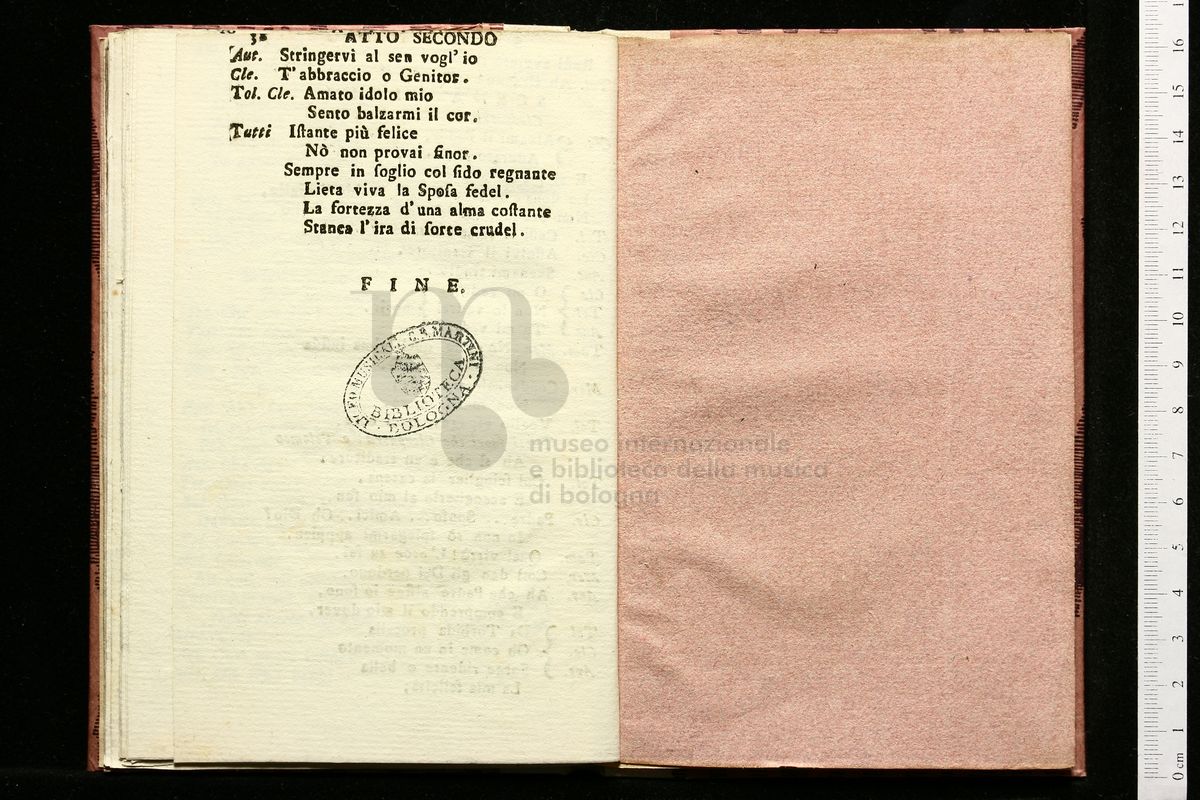 ATTO SECONDO
Aut. Stringervi al sen vogl' io
Cle. T' abbraccio o Genitor.
Tol. Cle. Amato idolo mio
Sento balzarmi il cor.
Tutti Iſtante più felice
Nò non provai finor.
Sempre in ſoglio col fido regnante
Lieta viva la Spoſa fedel.
La fortezza d'una alma coſtante
Stanca l' ira di ſorte crudel.
FINE.
LICEO MUSICALE G.B. MARTINI
BIBLIOTECA
BOLOGNA
museo internazionale
e biblioteca della musica
di bologna
16
15
14
13
12
11
10
9
8
7
6
5
4
3
2
1
0 cm